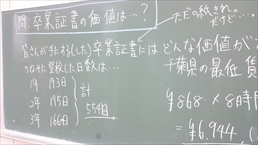 問：卒業証書の価値は…？
ただの紙きれ。
だけど…。
皆さんが手にする(した)卒業証書には
どんな価値が
学校に登校した日数は…
1年 193日
2年 195日
3年 166日
計
554日
千葉県の最低賃
¥868×8時間
=¥6,944